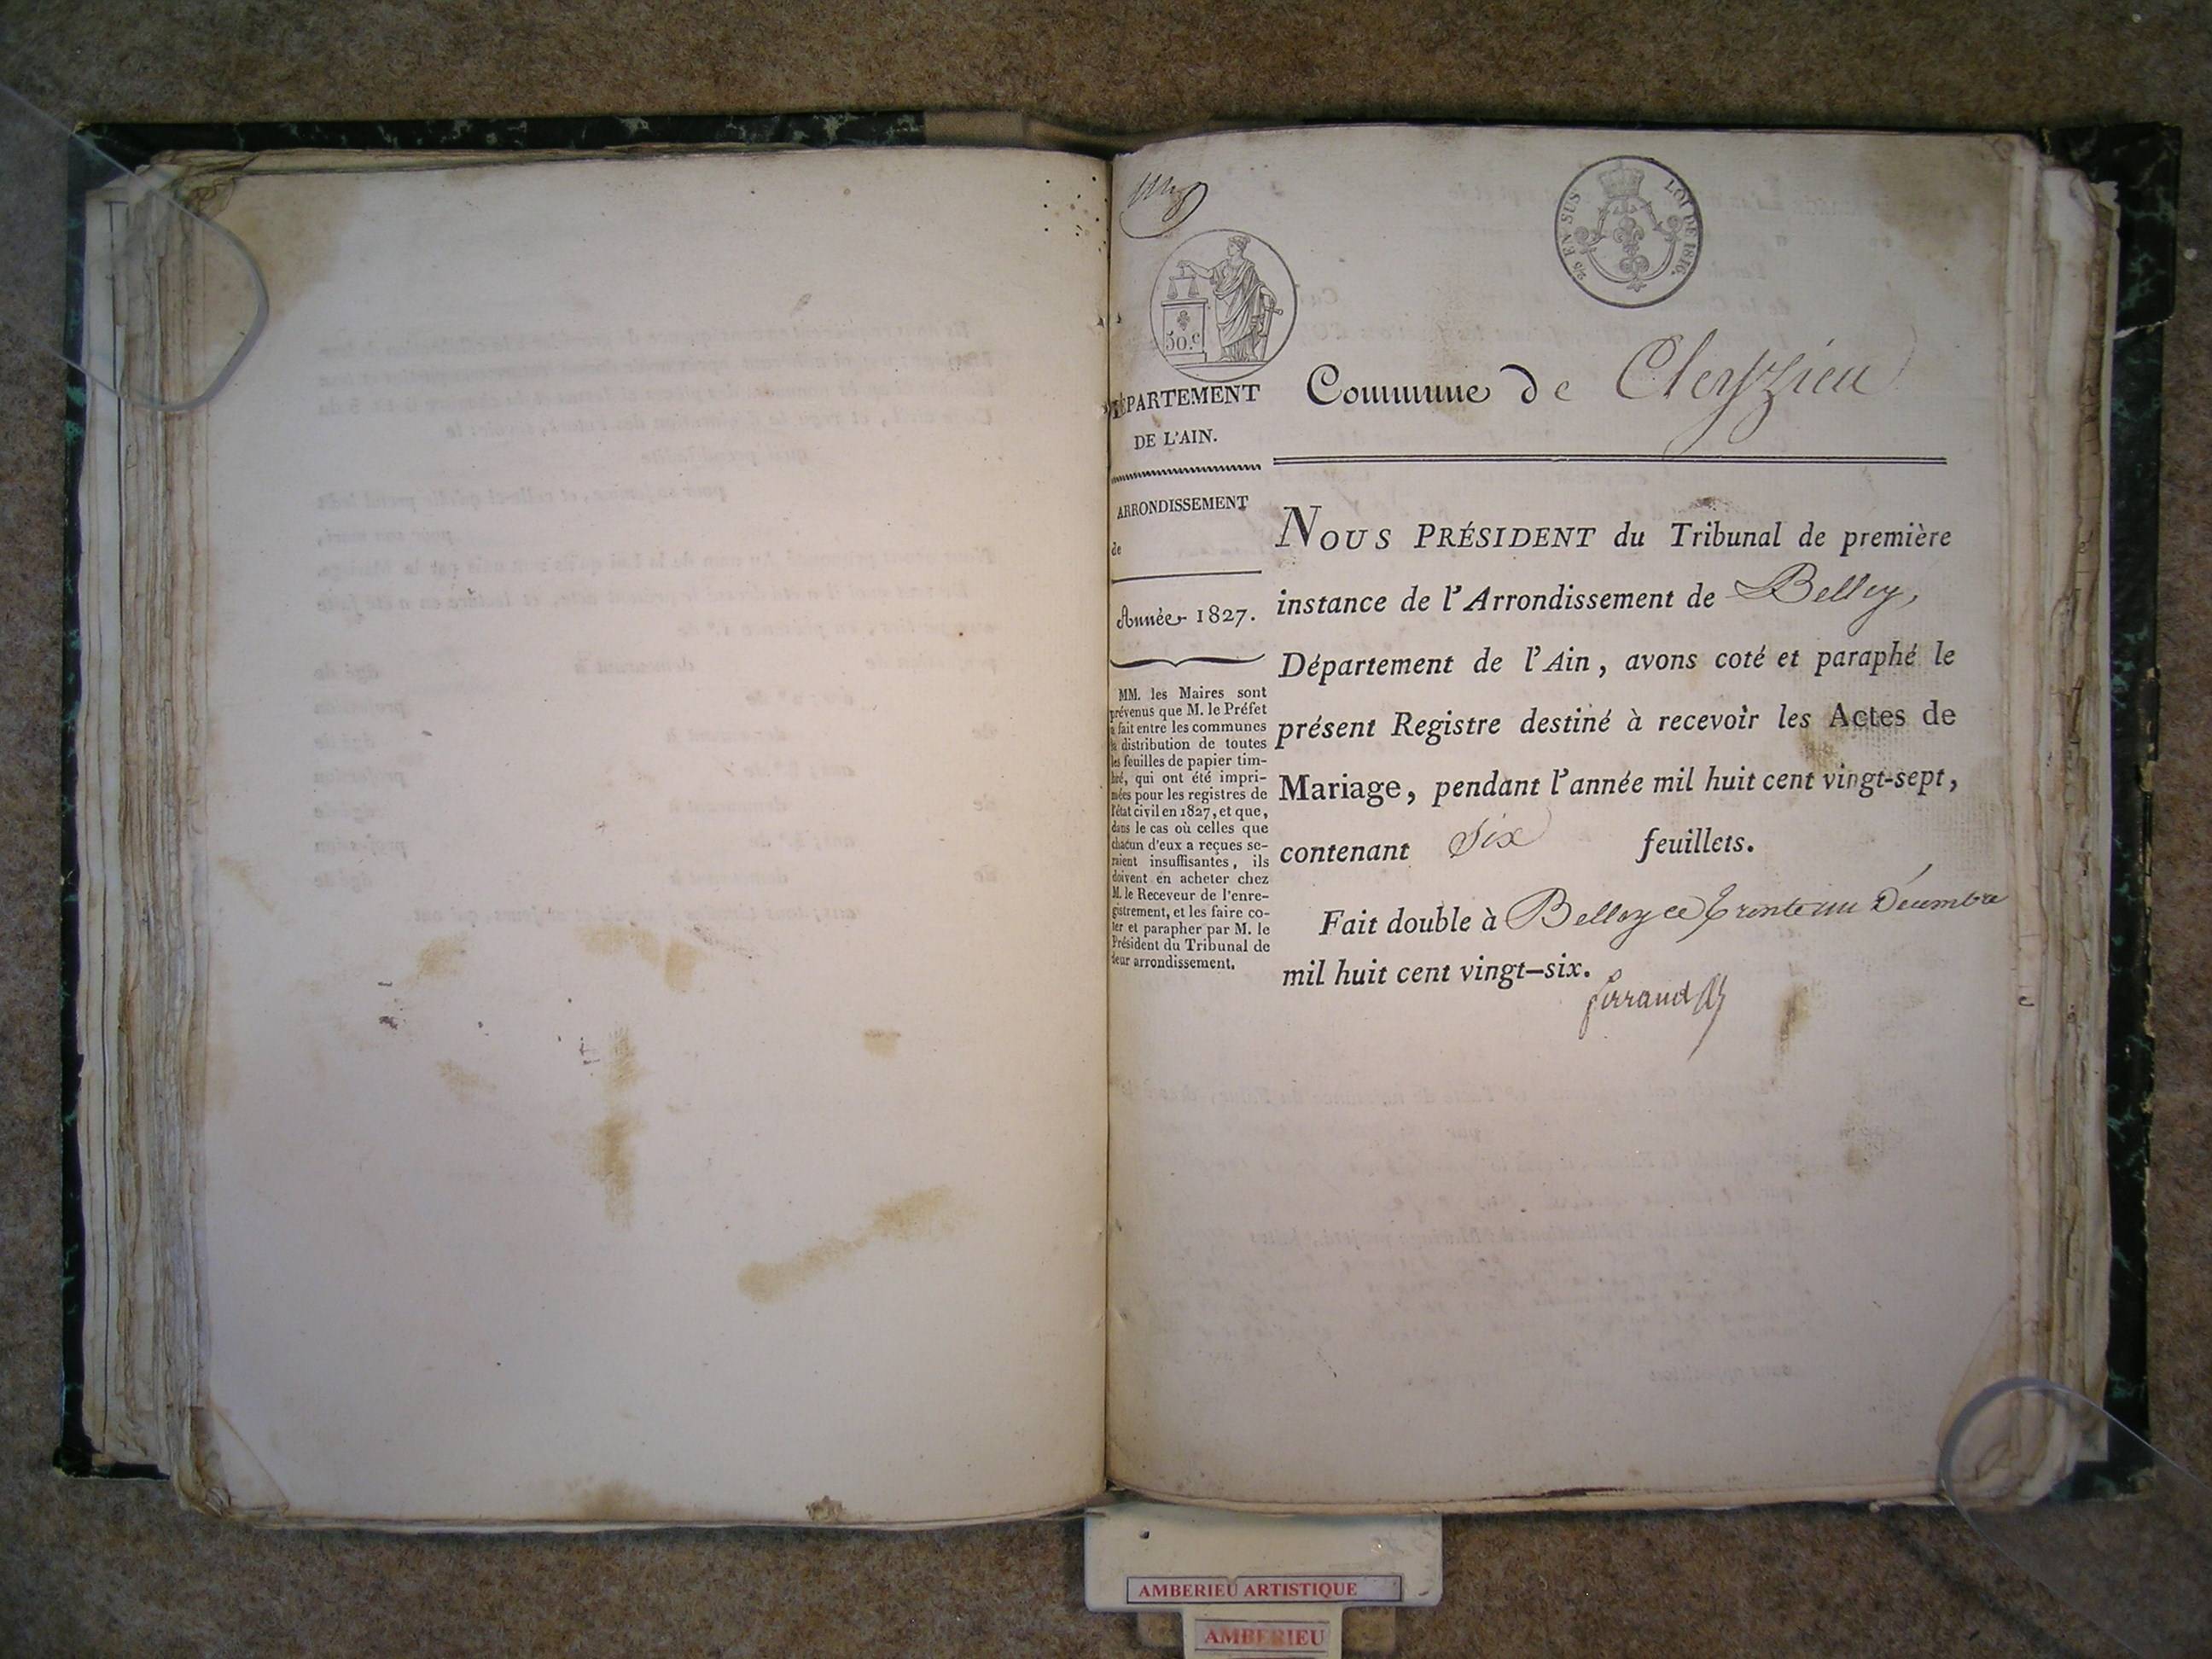 50.c
2/5 EN SUS
LOI DE 1816.
DÉPARTEMENT
DE L'AIN.
ARRONDISSEMENT
de
Année 1827.
MM. les Maires sont
prévenus que M. le Préfet
a fait entre les communes
la distribution de toutes
les feuilles de papier tim-
bré, qui ont été impri-
mées pour les registres de
l'état civil en 1827, et que,
dans le cas où celles que
chacun d'eux a reçues se-
raient insuffisantes, ils
doivent en acheter chez
M. le Receveur de l'enre-
gistrement, et les faire co-
ter et parapher par M. le
Président du Tribunal de
leur arrondissement.
Commune de Cleyzieu
NOUS PRÉSIDENT du Tribunal de première
instance de l'Arrondissement de Belley,
Département de l'Ain, avons coté et paraphé le
présent Registre destiné à recevoir les Actes de
Mariage, pendant l'année mil huit cent vingt-sept,
contenant Six feuillets.
Fait double à Belley ce trente un Décembre
mil huit cent vingt-six.
AMBERIEU ARTISTIQUE
AMBERIEU